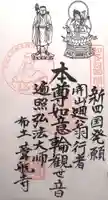 新四国発願
開山 行者
本尊如意輪觀世音
遍照弘法大師
布土 葦航寺